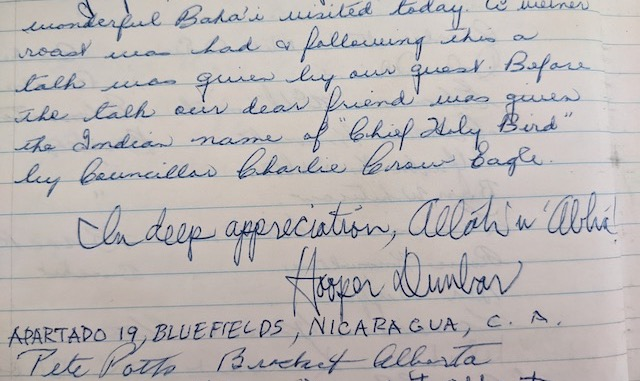 wonderful Baha'i visited today. A weiner
roast was had & following this a
talk was given by our guest. Before
the talk our dear friend was given
the Indian name of "Chief Holy Bird"
by Councillor Charlie Crow Eagle.
In deep appreciation, Alláh'u'Abhá!
Hooper Dunbar
APARTADO 19, BLUEFIELDS, NICARAGUA, C. A.
Pete Potts Brocket Alberta